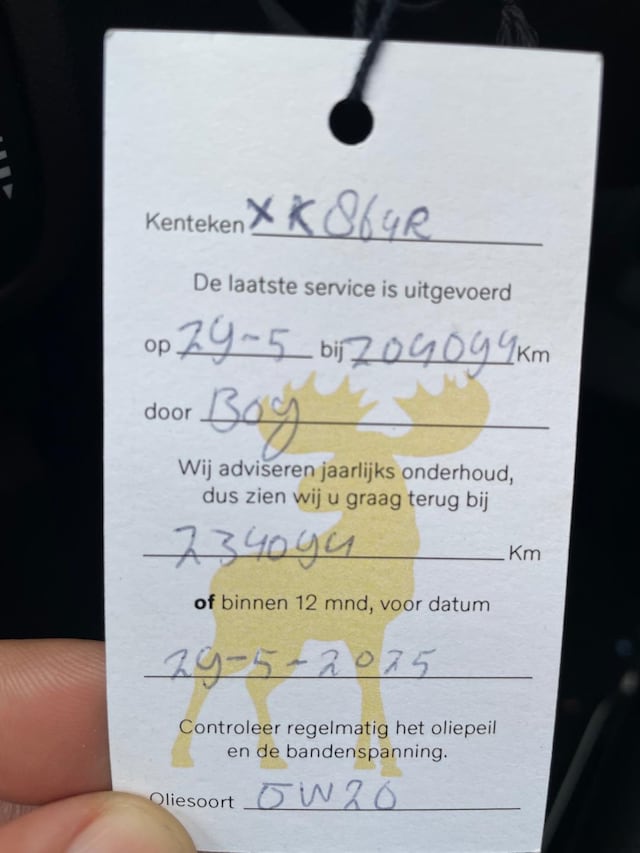 Kenteken XK864R
De laatste service is uitgevoerd
op 29-5 bij 204094 Km
door Boy
Wij adviseren jaarlijks onderhoud,
dus zien wij u graag terug bij
234094 Km
of binnen 12 mnd, voor datum
29-5-2025
Controleer regelmatig het oliepeil
en de bandenspanning.
Oliesoort 0W20